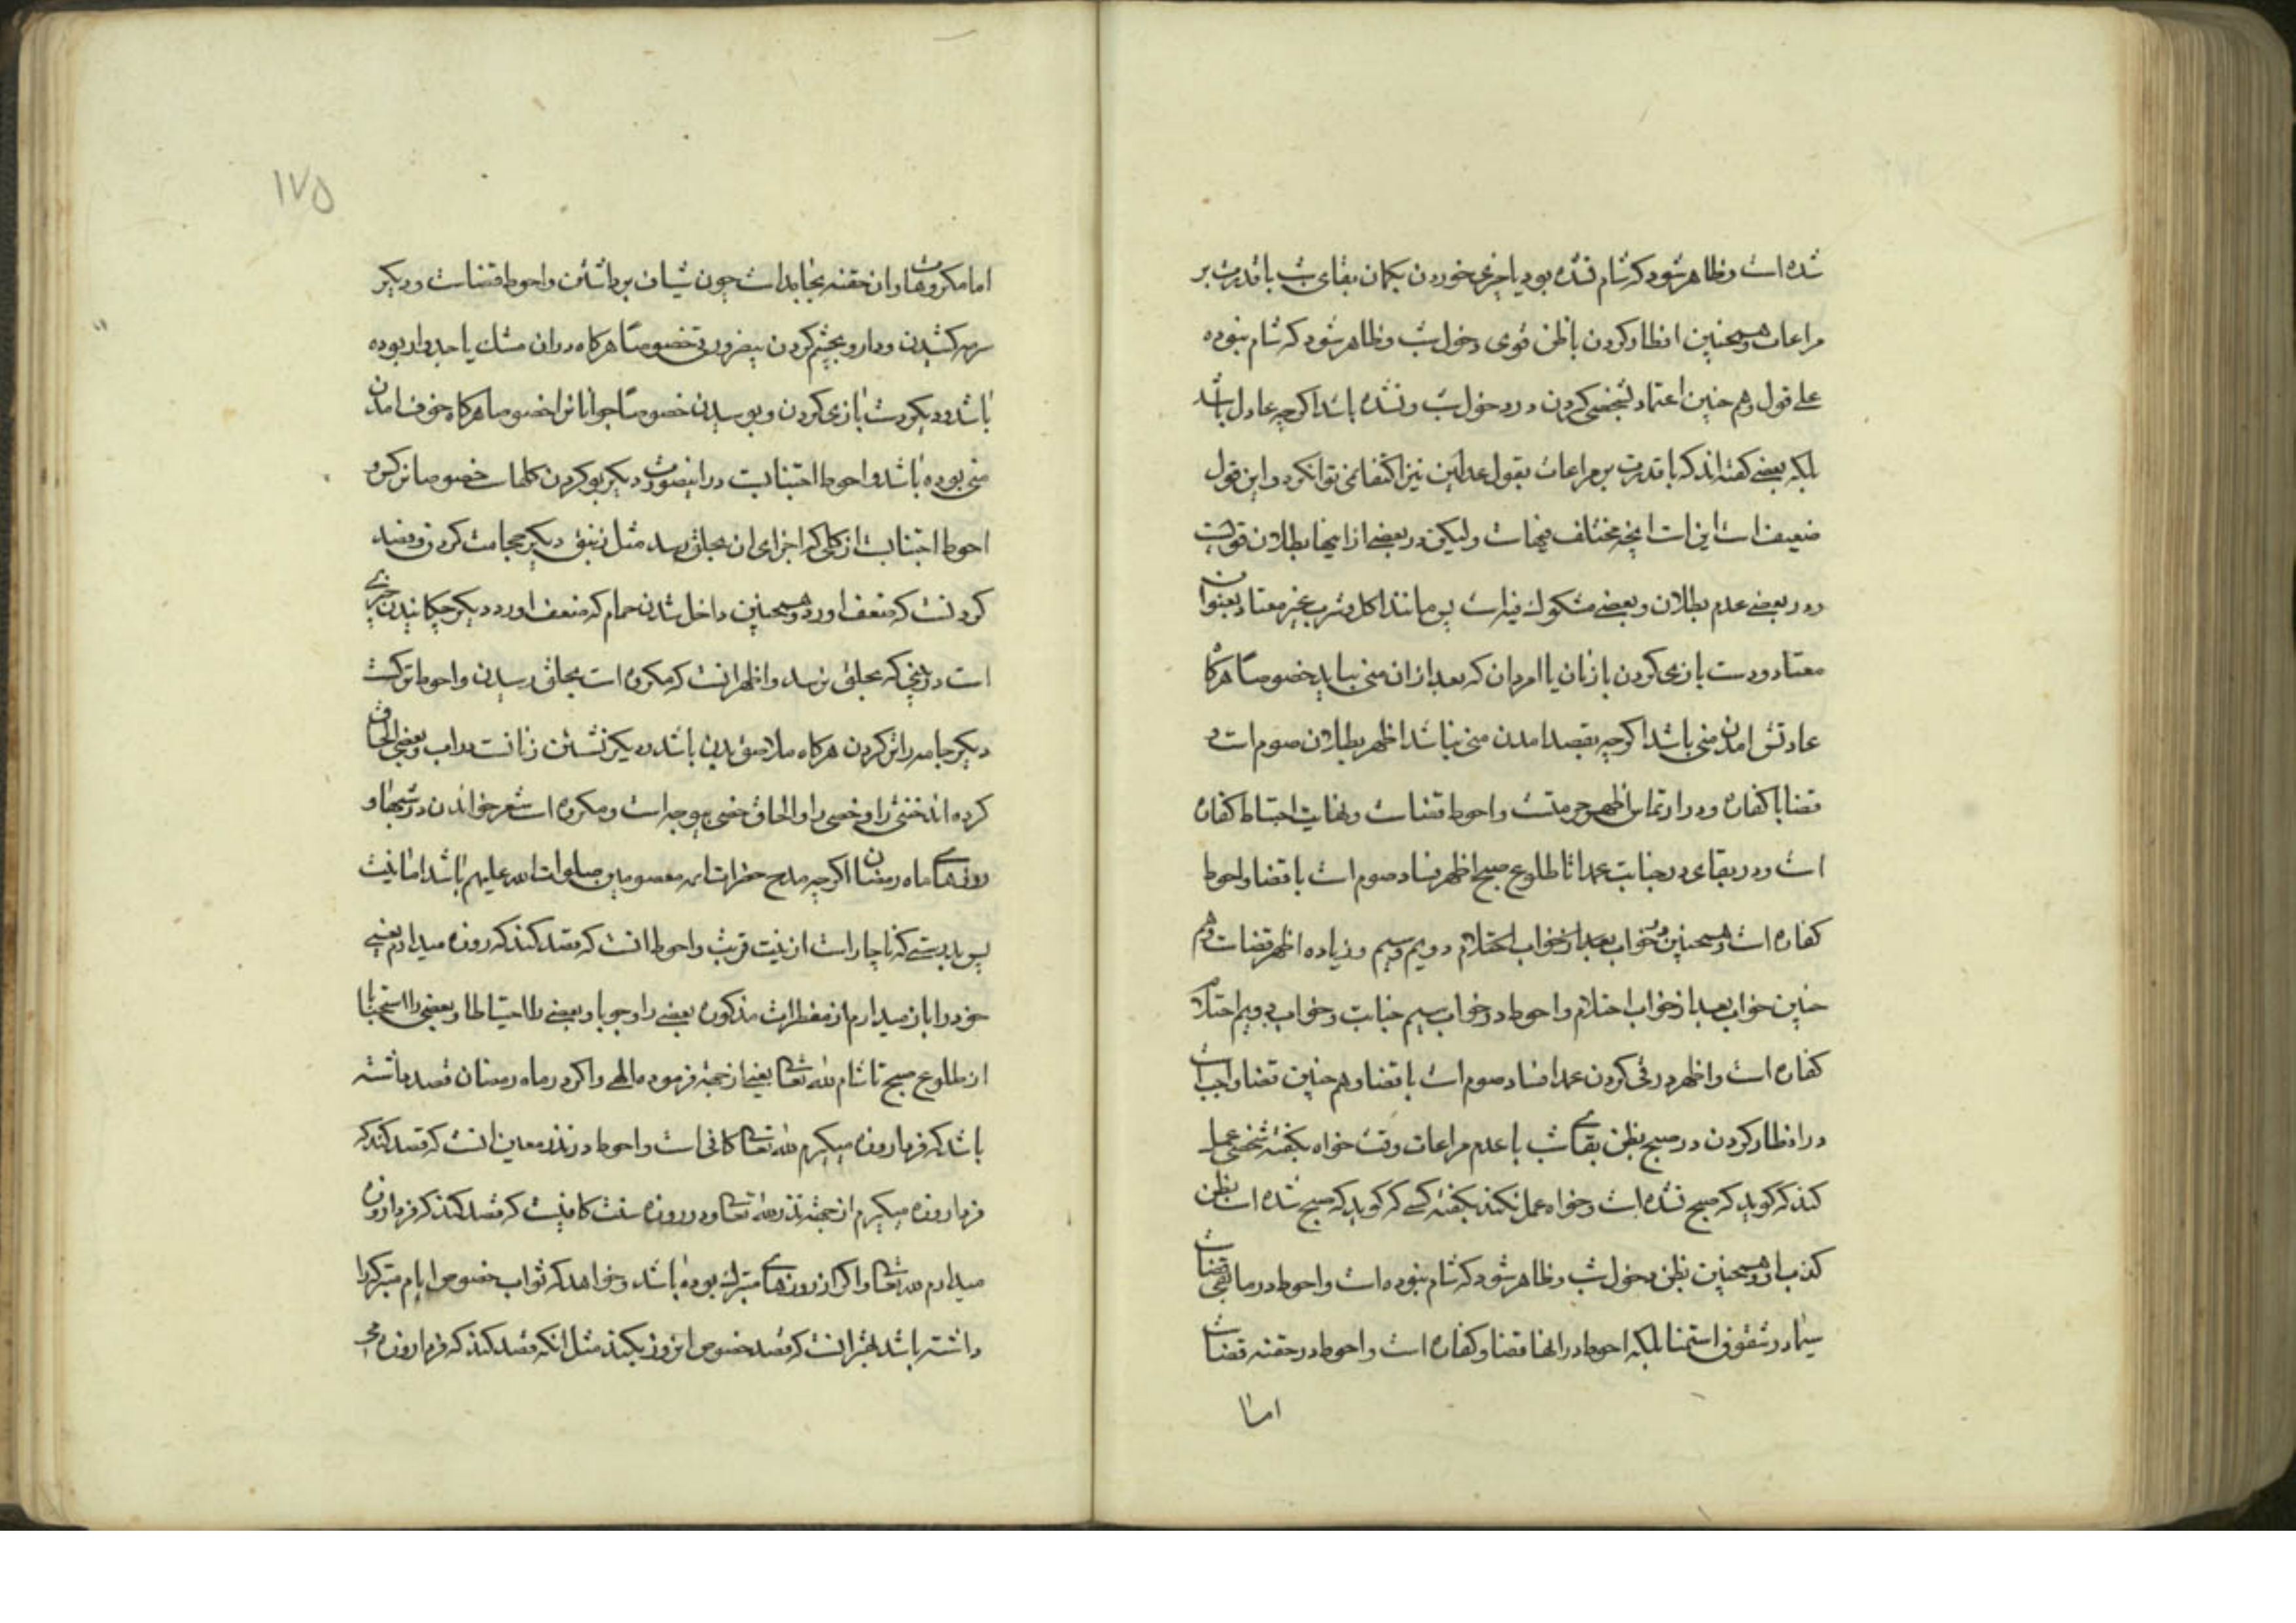 شده است و ظاهر شود که شام نشده بود یا چیزی خوردن بکمان بقای شب با قدرت بر
مراعات و همچنین افطار کردن با ظن قوی دخول شب و ظاهر شود که شام نبوده
علی قول و هم چنین اعتماد بشخصی کردن در دخول شب و نشده باشد اکرچه عادل باشد
بلکه بعضی کفته‌اند که با قدرت بر مراعات بقول عدلین نیز اکتفا نمی توانکرد و این قول
ضعیف است این است انچه مختلف فیهاست ولیکن در بعضی از اینها بطلان قویست
و در بعضی عدم بطلان و بعضی مشکوک فیه است پس مانند اکل و شرب غیر معتاد بعنوان
معتاد و دست بازی کردن با زنان یا امردان که بعد از ان منی بیاید خصوصا هرکاه
عادتش امدن منی باشد اکرچه بقصد امدن منی نباشد اظهر بطلان صوم است و
قضا با کفاره و در ارتماس اظهر حرمتست و احوط قضاست و نهایت احتیاط کفاره
است و در بقای در جنابت عمدا تا طلوع صبح اظهر فساد صوم است با قضا و احوط
کفاره است و همچنین در خواب بعد از خواب احتلام دویم و سیم و زیاده اظهر قضاست و هم
چنین خواب بعد از خواب احتلام و احوط در خواب سیم جنابت و خواب دویم احتلام
کفاره است و اظهر در قی کردن عمدا فساد صوم است با قضا و هم چنین قضا واجب است
در افطار کردن در صبح بظن بقای شب با عدم مراعات وقت خواه بکفته شخصی عمل
کند که کوید که صبح نشده است و خواه عمل نکند بکفته کسی که کوید که صبح شده است بظن
کذب او و همچنین بظن دخول شب و ظاهر شود که شام نبوده است و احوط در ما بقی قضاست
سیما در شقوق استمنا بلکه احوط در انها قضا و کفاره است و احوط در حقنه قضاست
اما
۱۷۵
اما مکروهات و ان حقنه بجامد است چون شیاف برداشتن و احوط قضاست و دیکر
سرمه کشیدن و دارو بچشم کردن بیضرورتی خصوصا هرکاه در ان مشک یا جدوار بوده
باشد و دیکر دست بازی کردن و بوسیدن خصوصا جوانانرا خصوصا هرکاه خوف امدن
منی بوده باشد و احوط اجتنابست در اینصورت دیکر بو کردن کلها خصوصا نرکس و
احوط اجتنابست از کلی که اجزای ان بحلق رسد مثل زنبق دیکر حجامت کردن و فصد
کردنست که ضعف اورد و همچنین داخل شدن حمام که ضعف اورد دیکر چکانیدن چیزی
است در بینی که بحلق نرسد و اظهر انست که مکروه است بحلق رسیدن و احوط ترکست
دیکر جامه را تر کردن هرکاه ملاصق بدن باشد دیکر نشستن زنانست در اب و بعضی الحاق
کرده‌اند خنثی را و خصی را و الحاق خصی بیوجه است و مکروه است شعر خواندن در شبها و
روزهای ماه رمضان اکرچه مدح حضرات ائمه معصومین صلوات الله علیهم باشد اما نیت
پس بدرستی که ناچار است از نیت قربت و احوط انست که قصد کند که روزه میدارم یعنی
خود را باز میدارم از مفطرات مذکوره بعضی را وجوبا و بعضی را احتیاطا و بعضی را استحبابا
از طلوع صبح تا شام لله تعالی یعنی از جهة فرموده الهی و اکر در ماه رمضان قصد داشته
باشد که فردا روزه میکیرم لله تعالی کافی است و احوط در نذر معین انست که قصد کند که
فردا روزه میکیرم از جهة نذر لله تعالی و در روزه سنت کافیست که قصد کند که فردا روزه
میدارم لله تعالی و اکر از روزهای متبرک بوده باشد و خواهد که ثواب خصوص ایام متبرکرا
داشته باشد بهتر انست که قصد خصوص انروز بکند مثل انکه قصد کند که فردا روزه